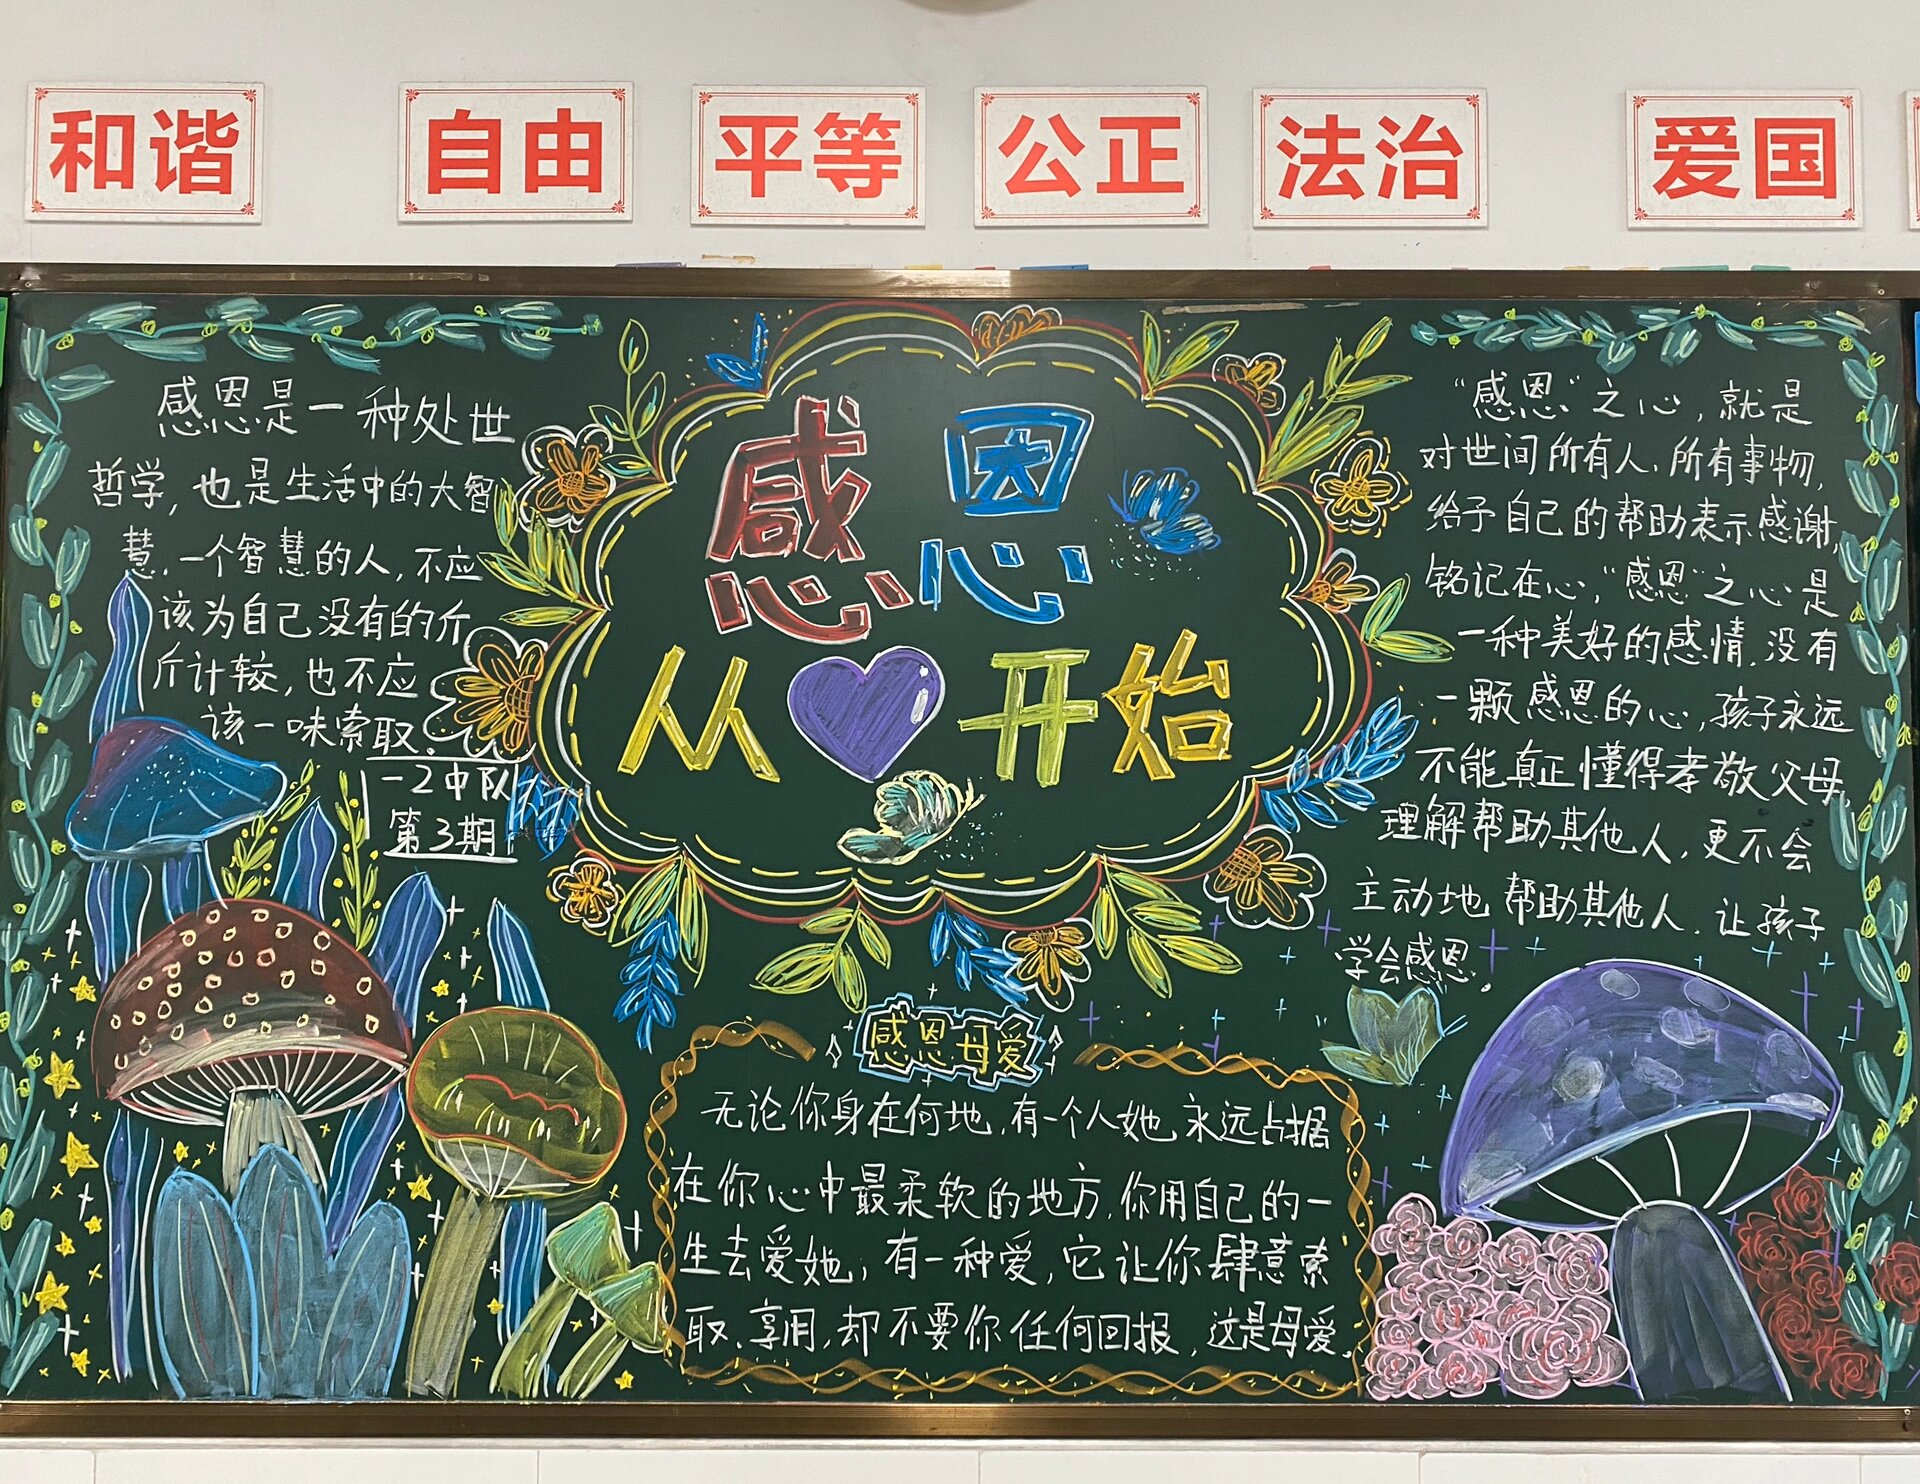 和谐
自由
平等
公正
法治
爱国
感恩
从 开始
感恩是一种处世
哲学,也是生活中的大智
慧.一个智慧的人,不应
该为自己没有的斤
斤计较,也不应
该一味索取.
一2中队
第3期
“感恩”之心,就是
对世间所有人、所有事物,
给予自己的帮助表示感谢,
铭记在心,“感恩”之心是
一种美好的感情.没有
一颗感恩的心,孩子永远
不能真正懂得孝敬父母,
理解帮助其他人,更不会
主动地帮助其他人.让孩子
学会感恩.
感恩母爱
无论你身在何地,有一个人她永远占据
在你心中最柔软的地方,你用自己的一
生去爱她;有一种爱,它让你肆意索
取、享用,却不要你任何回报,这是母爱.